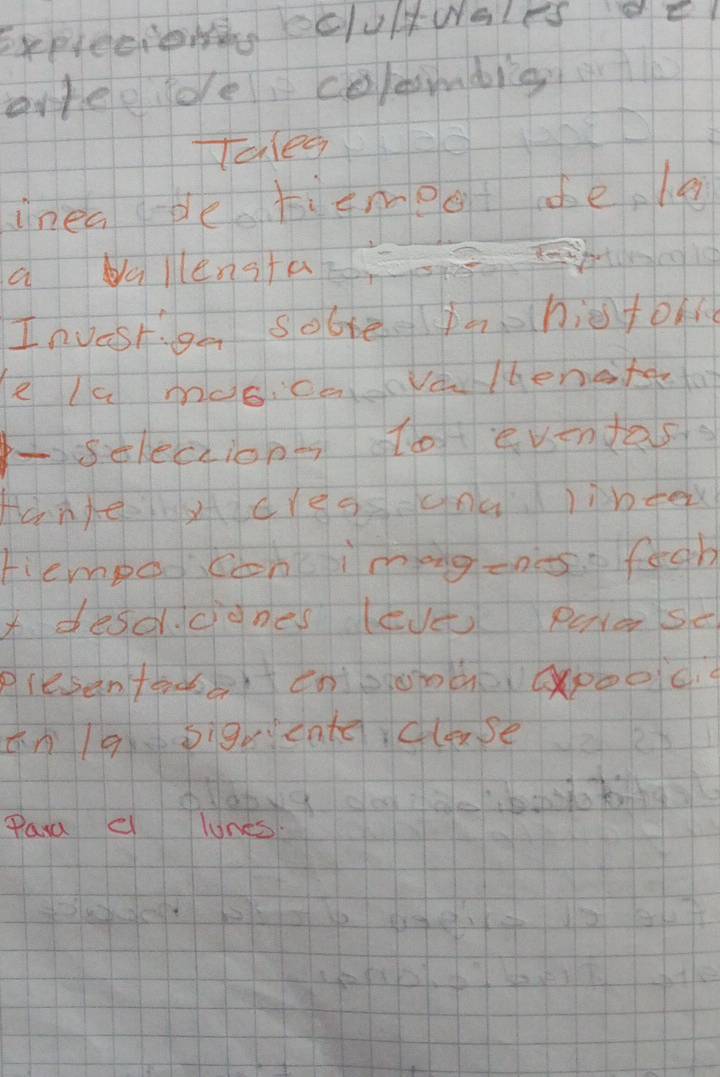 Expreciones clulturales del
arte de colombia
Tarea
inea de tiempo de la
a vallenata
Investiga sobre la histori
e la musica vallenata
- selecciona lo eventos
tante y crea una linea
tiempo con imagenes fech
y desdiciones leves para se
presentada en una exposici
en la sigriente clase
Para el lunes.